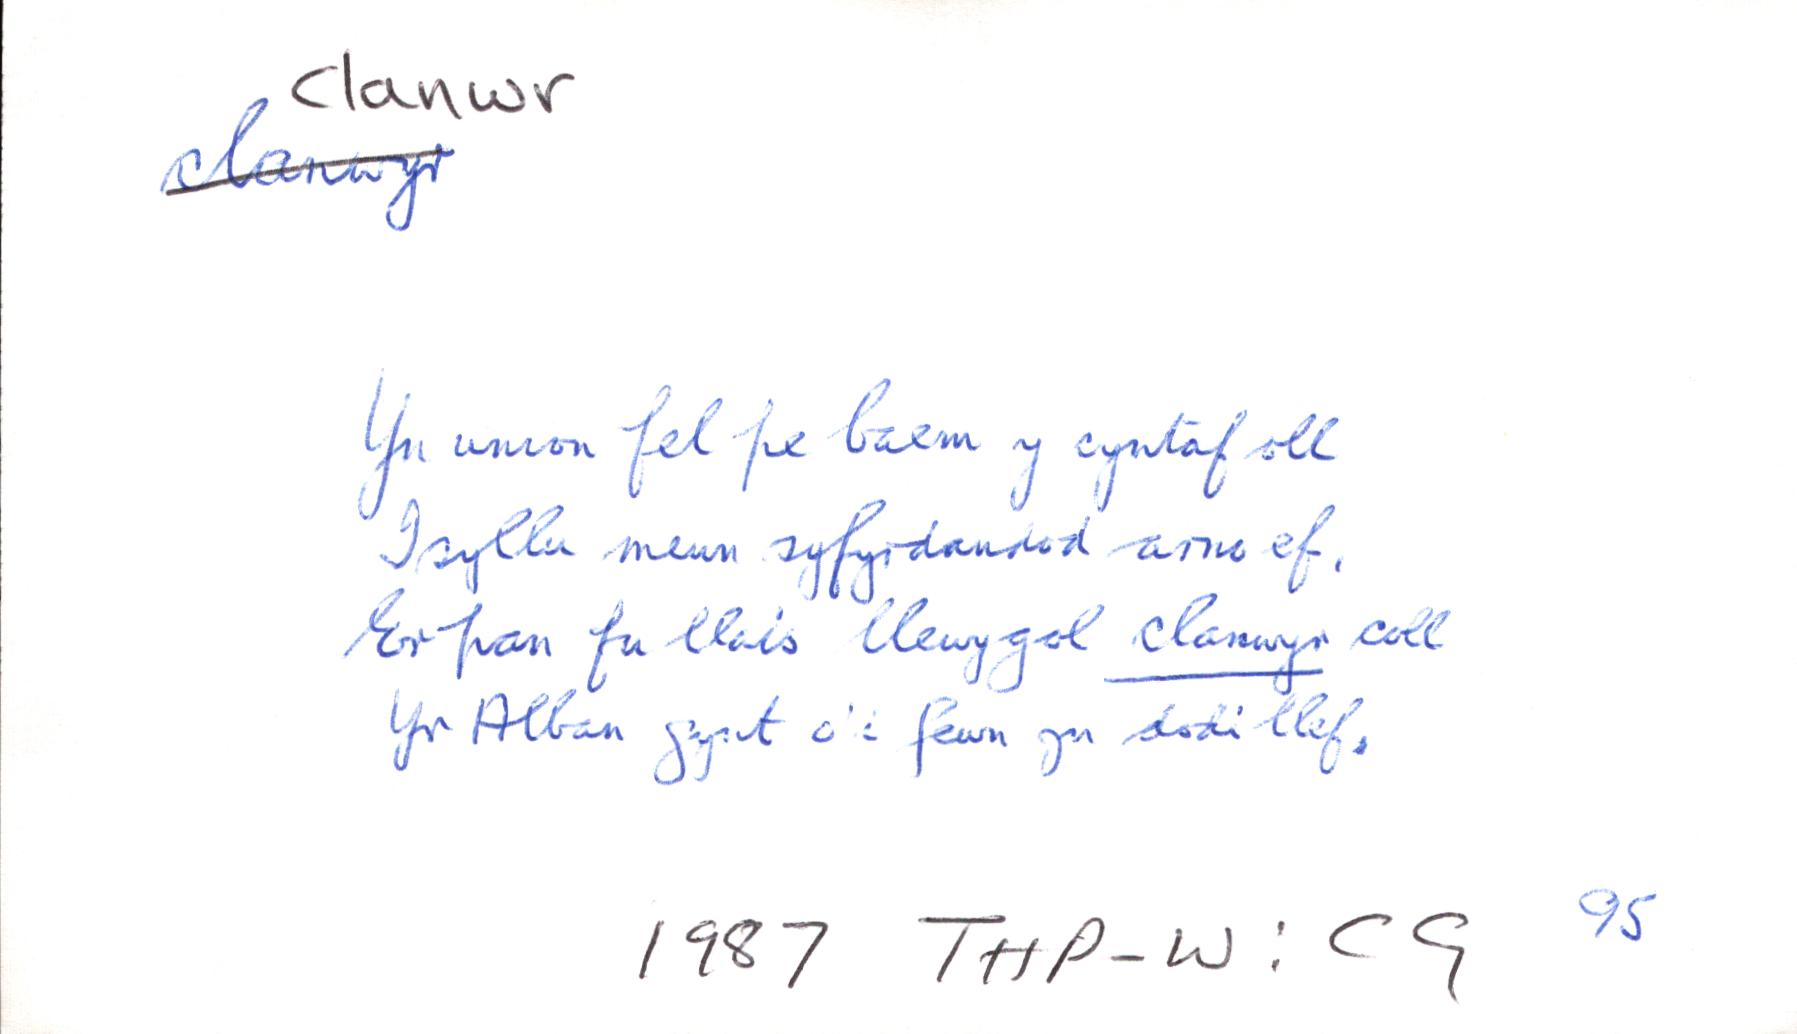 clanwr
clanwyr
Yn union fel pe baem y cyntaf oll
I syllu mewn syfyrdandod arno ef,
Er pan fu llais llewygol clanwyr coll
Yr Alban gynt o'i fewn yn dodi llef.
1987 THP-W: CG 95